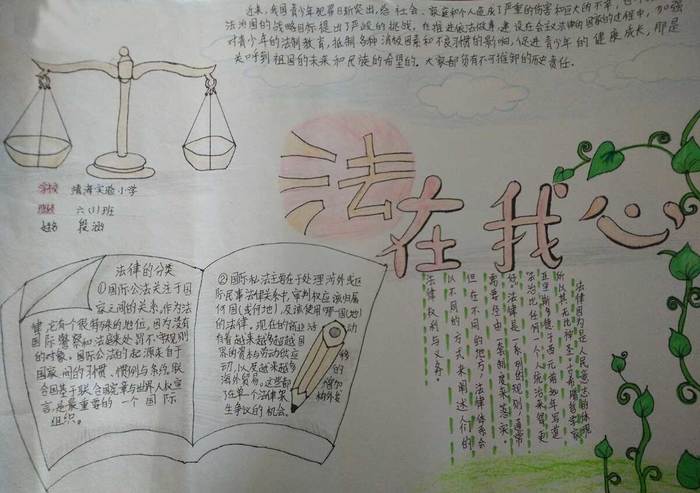 近来,我国青少年犯罪日渐突出,给社会、家庭和个人造成了严重的伤害和巨大的不幸,
法治国的战略目标提出了严峻的挑战,在推进依法做事,建设社会主义法律的国家的过程中,加强
对青少年的法制教育,抵制各种消极因素和不良习惯的影响,促进青少年的健康成长,那是
关呼到祖国的未来和民族的希望的。大家都负有不可推卸的历史责任。
法在我心
学校 靖海实验小学
班级 六(1)班
姓名 段涵
法律的分类
①国际公法关注于国
家之间的关系,作为法
律,它有个很特殊的地位,因为没有
国际警察和法庭来处罚不守规则
的对象。国际公法的起源来自于
国家间的习惯、惯例与条约,联
合国基于联合国宪章与世界人权宣
言,是最重要的一个国际
组织。
②国际私法主要在于处理涉外或区
际民事法律关系中,审判权应该归属
何国(或何地),及该使用哪一国(地)
的法律。现在的商业活动
有着越来越多超越国
界的资本与劳动供应
以及越来越多
海外贸易。这些都
在单个法律
生争议的机会。
法律因为是人民意志的体现
所以其无比神圣。古希腊哲学家
亚里斯多德于西元前350年写道
法治比任何一个人统治来得更
好。法律是一系列的规则,通常
需要经由一套制度来落实。
但在不同的地方,法律体系会
以不同的方式来阐述人们的
法律权利与义务。